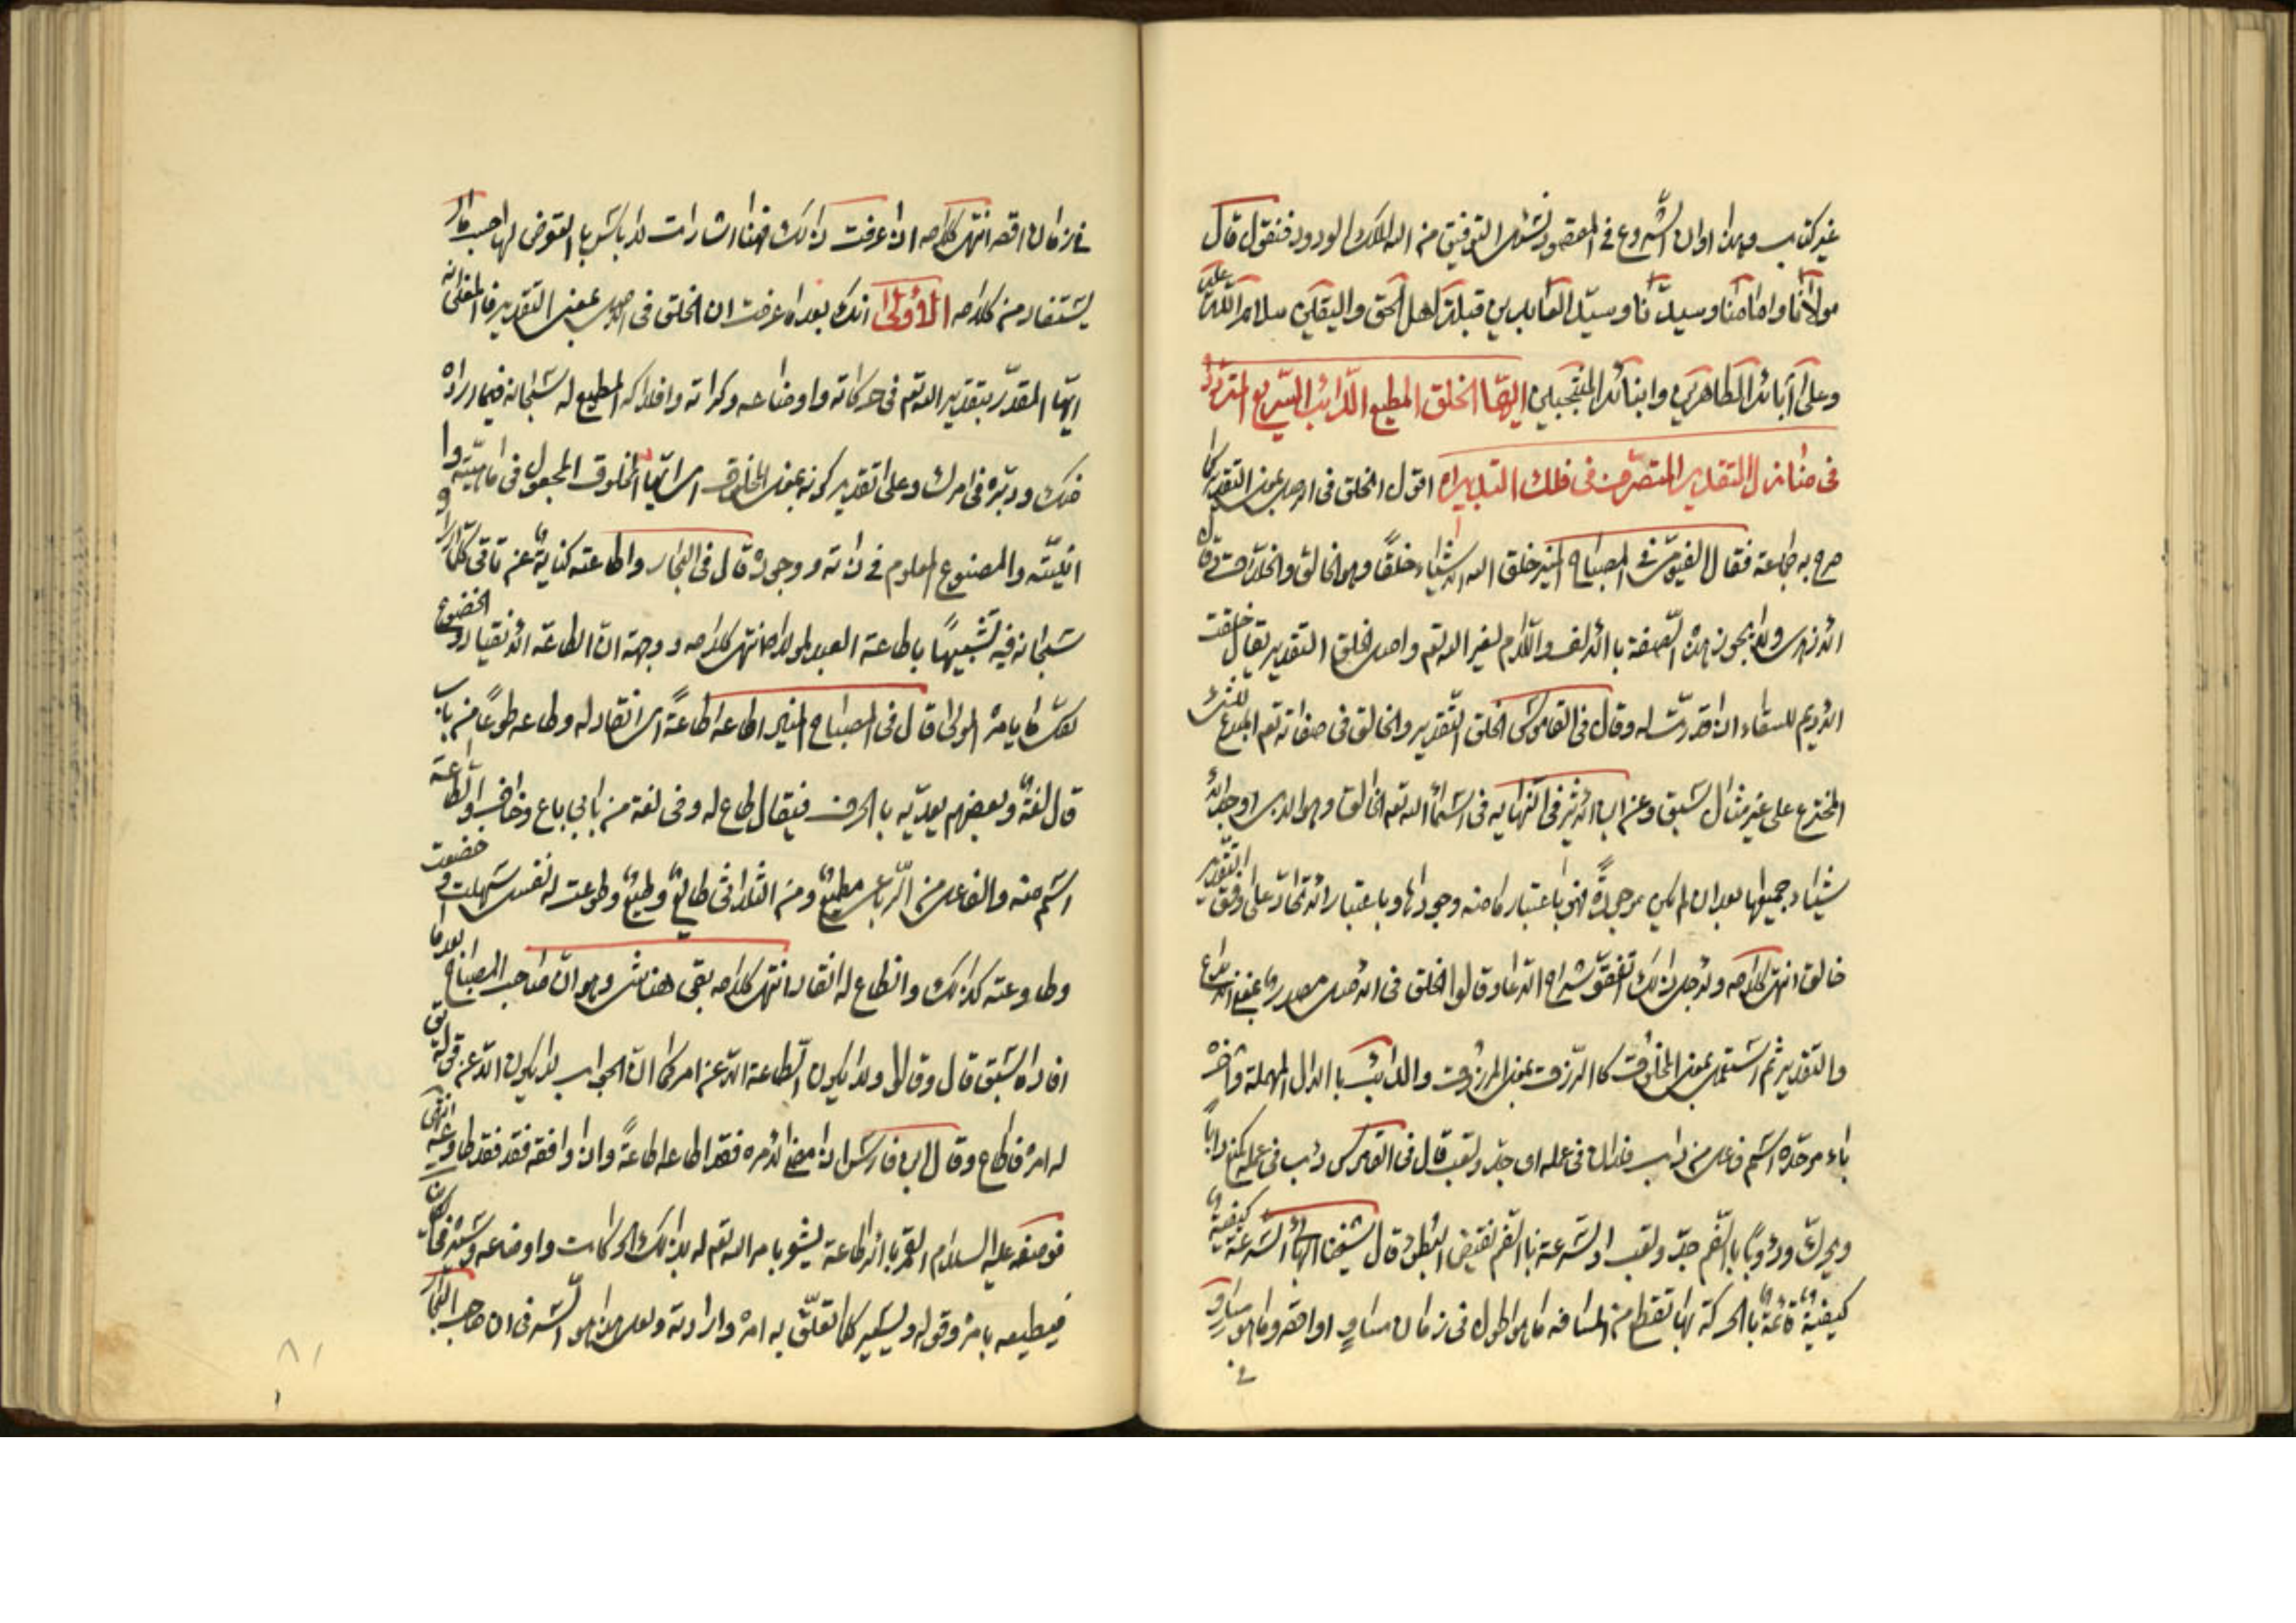 غير كتاب وهذا اوان الشروع في المقصود نسئل التوفيق من الله الملك الودود فنقول قال
مولانا وامامنا وسيدنا وسيد العابدين قبلة اهل الحق واليقين سلام الله عليه
وعلى آبائه الطاهرين وابنائه المنتجبين ايها الخلق المطيع الدائب السريع المتردد
في منازل التقدير المتصرف في فلك التدبير اه اقول الخلق في الاصل بمعنى التقدير كما
صرح به جماعة فقال الفيومي في المصباح المنير خلق الله الاشياء خلقًا وهو الخالق والخلاق قال
الازهري ولا يجوز هذه الصفة بالالف واللام لغير الله تعم واصل الخلق التقدير يقال خلقت
الاديم للسقاء اذا قدرته له وقال في القاموس الخلق التقدير والخالق في صفاته تعم المبدع للشئ
المخترع على غير مثال سبق وعن ابن الاثير في النهاية في اسماء الله تعم الخالق وهو الذي اوجد الا
شياء جميعها بعد ان لم تكن موجودة فهو باعتبار ما منه وجودها وباعتبار الاتحاد على وفق التقدير
خالق انتهى كلامه ولاجل ذلك اتفق شراح الدعاء وقالوا الخلق في الاصل مصدر بمعنى الابداع
والتقدير ثم استعمل بمعنى المخلوق كالرزق بمعنى المرزوق والدائب بالدال المهملة وآخره
باء موحدة اسم فاعل من داب فلان في عمله اى جد وتعب قال في القاموس دئب في عمله كمنع دابًا
ويحرك ودؤوبًا بالضم جد وتعب والسرعة بالضم نقيض البطؤ قال شيخنا البهائي السرعة كيفية
كيفية قائمة بالحركة بها تقطع من المسافة ما هو اطول في زمان مساوٍ او اقصر وما هو مساوٍ
في
في زمان اقصر انتهى كلامه اذا عرفت ذلك فهنا اشارات لا باس با التعرض لها حسب ما
يستفاد من كلامه الاولى انك بعد ما عرفت ان الخلق في الاصل بمعنى التقدير فالمعنى انه
ايها المقدر بتقدير الله تعم في حركاته واوضاعه وكراته وافلاكه المطيع له سبحانه فيما اراده
منك ودبره في امرك وعلى تقدير كونه بمعنى المخلوق اى ايها المخلوق المجعول في ماهيته وا
انيته والمصنوع المعلوم في ذاته ووجوده قال في البحار واطاعته كناية عن تاتي كلما اراد
سبحانه فيه تشبيهًا باطاعة العبد لمولاه انتهى كلامه ووجهه ان الطاعة الانقياد والخضوع
قال في المصباح المنير اطاعه اطاعةً اى انقاد له وطاعه طوعًا من باب
قال لغة وبعضهم يعديه بالحرف فيقال طاع له وفي لغة من بابي باع وخاف والطاعة
اسم منه والفاعل من الرباعي مطيع ومن الثلاثي طائع وطيع وطوعت له نفسه سهلت و
وطاوعته كذلك وانطاع له انقاد انتهى كلامه بقى هنا شئ وهو ان صاحب المصباح بعد ما
افاده سبق قال وقالوا ولا يكون الطاعة الا عن امر كما ان الجواب لا يكون الا عن قول يق
له امره فاطاع وقال ابن فارس اذا مضى لامره فقد اطاعه اطاعةً واذا وافقه فقد طاوعه انتهى
فوصفه عليه السلام القمر بالاطاعة
فيطيعه بامره وقوله ويسير كما تعلق به امره وارادته ولعل هذا هو السر في ان صاحب البحار